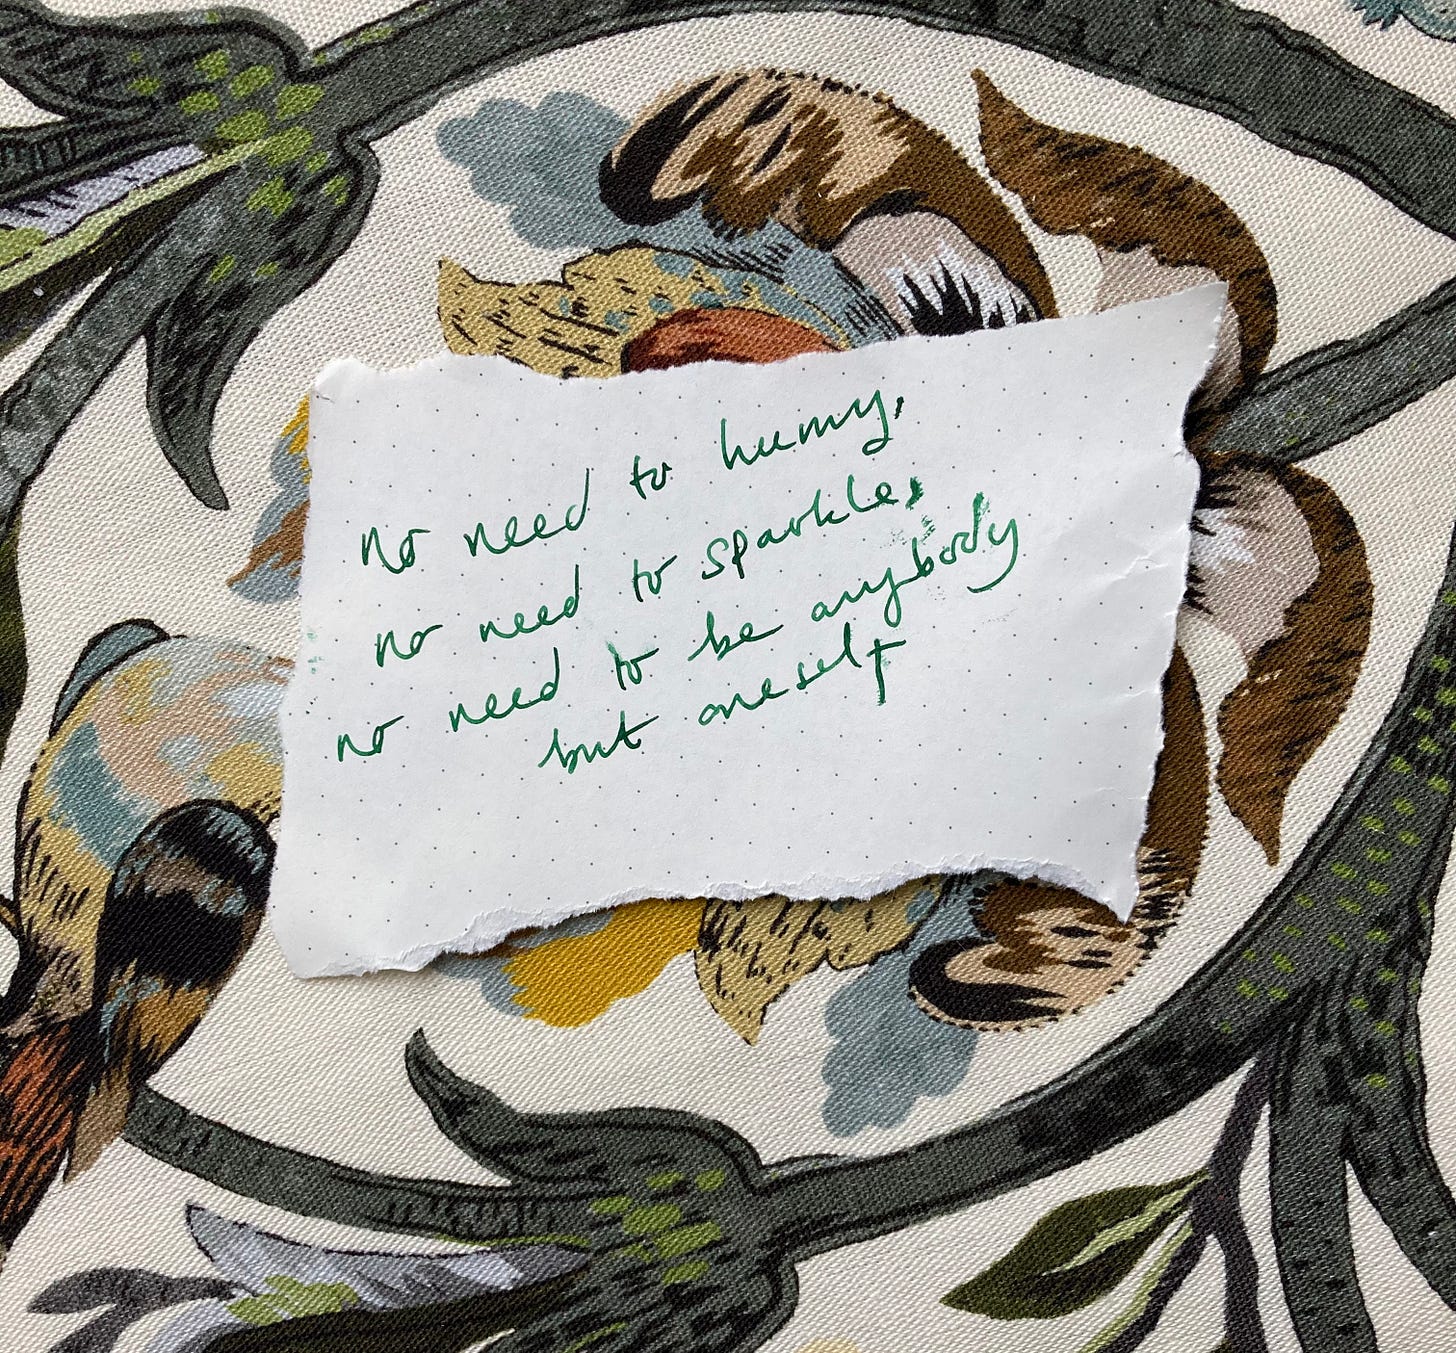 No need to hurry,
no need to sparkle,
no need to be anybody
but oneself